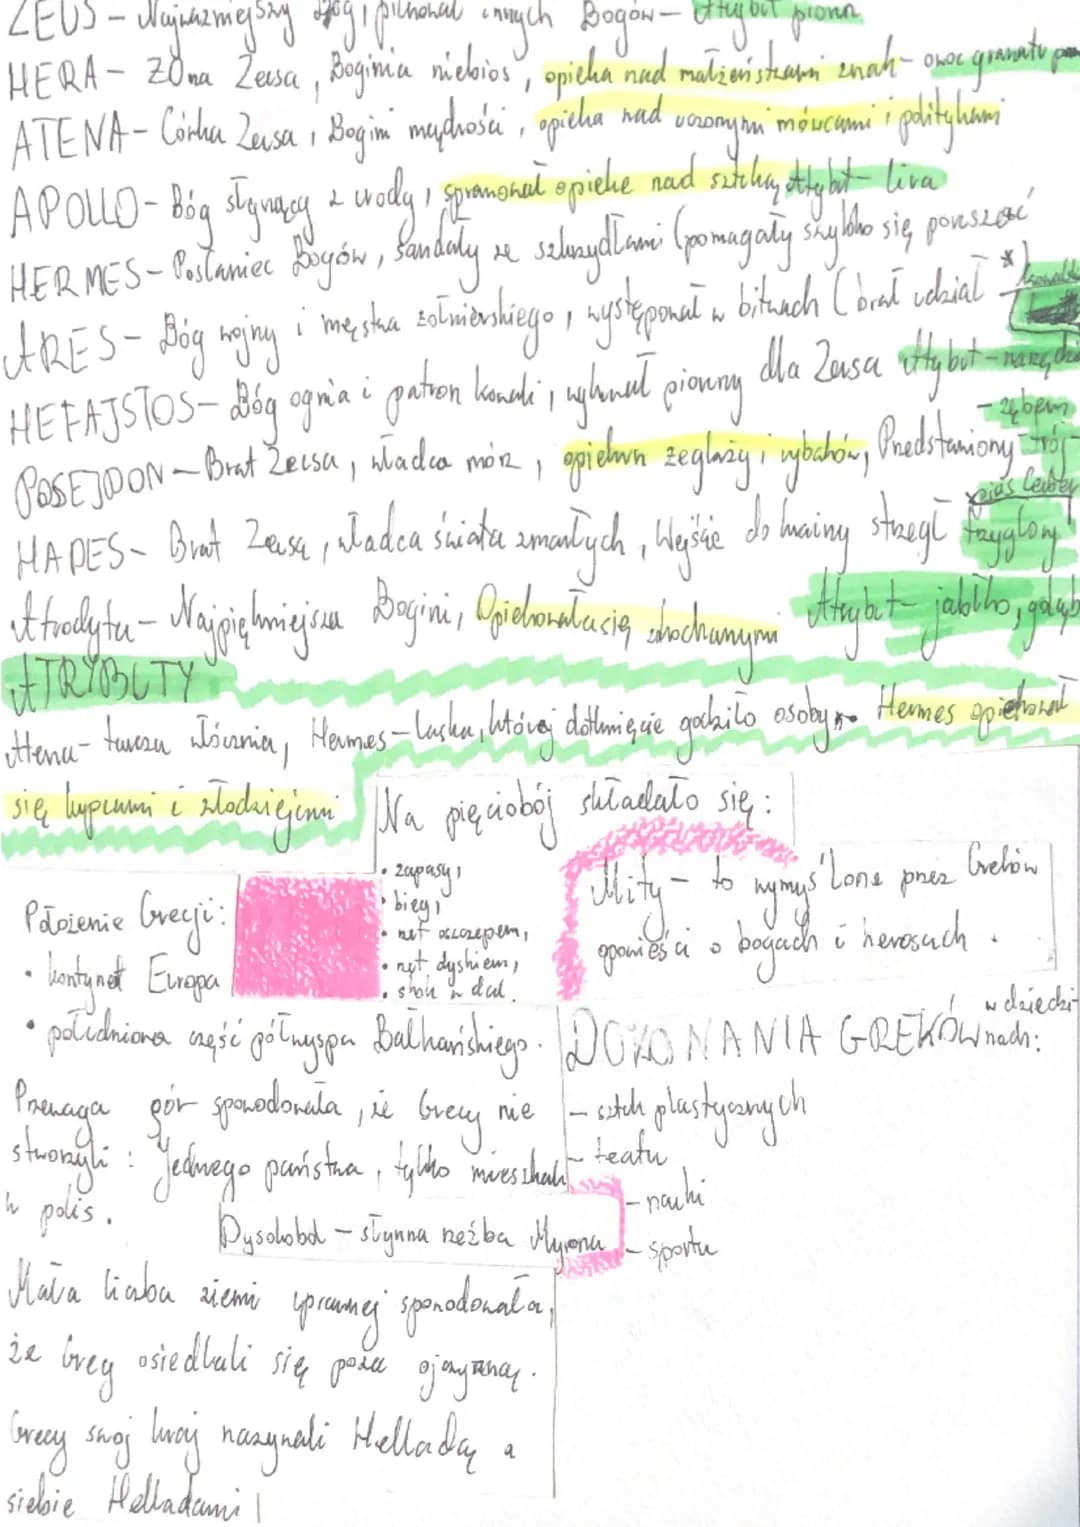 ZEUS - Najważniejszy Bóg, pilnował innych Bogów - Atrybut piorun
HERA - Żona Zeusa, Boginia niebios, opieka nad małżeństwami znak - owoc granatu
ATENA - Córka Zeusa, Bogini mądrości, opieka nad uczonymi mówcami i politykami
APOLLO - Bóg słynący z urody, sprawował opiekę nad sztuką Atrybut - lira
HERMES - Posłaniec Bogów, sandały ze skrzydłami (pomagały szybko się poruszać
ARES - Bóg wojny i męstwa żołnierskiego, występował w bitwach (brał udział *)
HEFAJSTOS - Bóg ognia i patron kowali, wykuwał pioruny dla Zeusa Atrybut - narzędzia
POSEJDON - Brat Zeusa, władca mórz, opiekun żeglarzy i rybaków, Przedstawiony - trój-
- zębem
HADES - Brat Zeusa, władca świata zmarłych, Wejście do krainy strzegł trzygłowy
pies Cerber
Afrodyta - Najpiękniejsza Bogini, Opiekowała się zakochanymi Atrybut - jabłko, gołąb
ATRYBUTY
Atena - tarcza włócznia, Hermes - laska, której dotknięcie godziło osoby. Hermes opiekował
się kupcami i złodziejami
Na pięciobój składało się:
• zapasy,
• bieg,
• rzut oszczepem,
• rzut dyskiem,
• skok w dal.
Mity - to wymyślone przez Greków
opowieści o bogach i herosach.
Położenie Grecji:
• kontynet Europa
• południowa część półwyspu Bałkańskiego.
Przewaga gór spowodowała, że Grecy nie
stworzyli: jednego państwa, tylko mieszkali
w polis.
DOKONANIA GREKÓW w dziedzi-
nach:
- sztuk plastycznych
- teatru
- nauki
- sportu
Dyskobol - słynna rzeźba Myrona
Mała liczba ziemi uprawnej spowodowała,
że Grecy osiedlali się poza ojczyzną.
Grecy swój kraj nazywali Helladą a
siebie Helladami